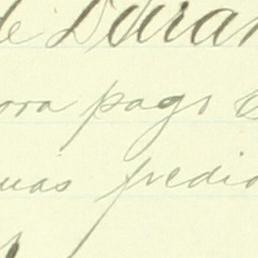 de Duran
ora pago
uas predio